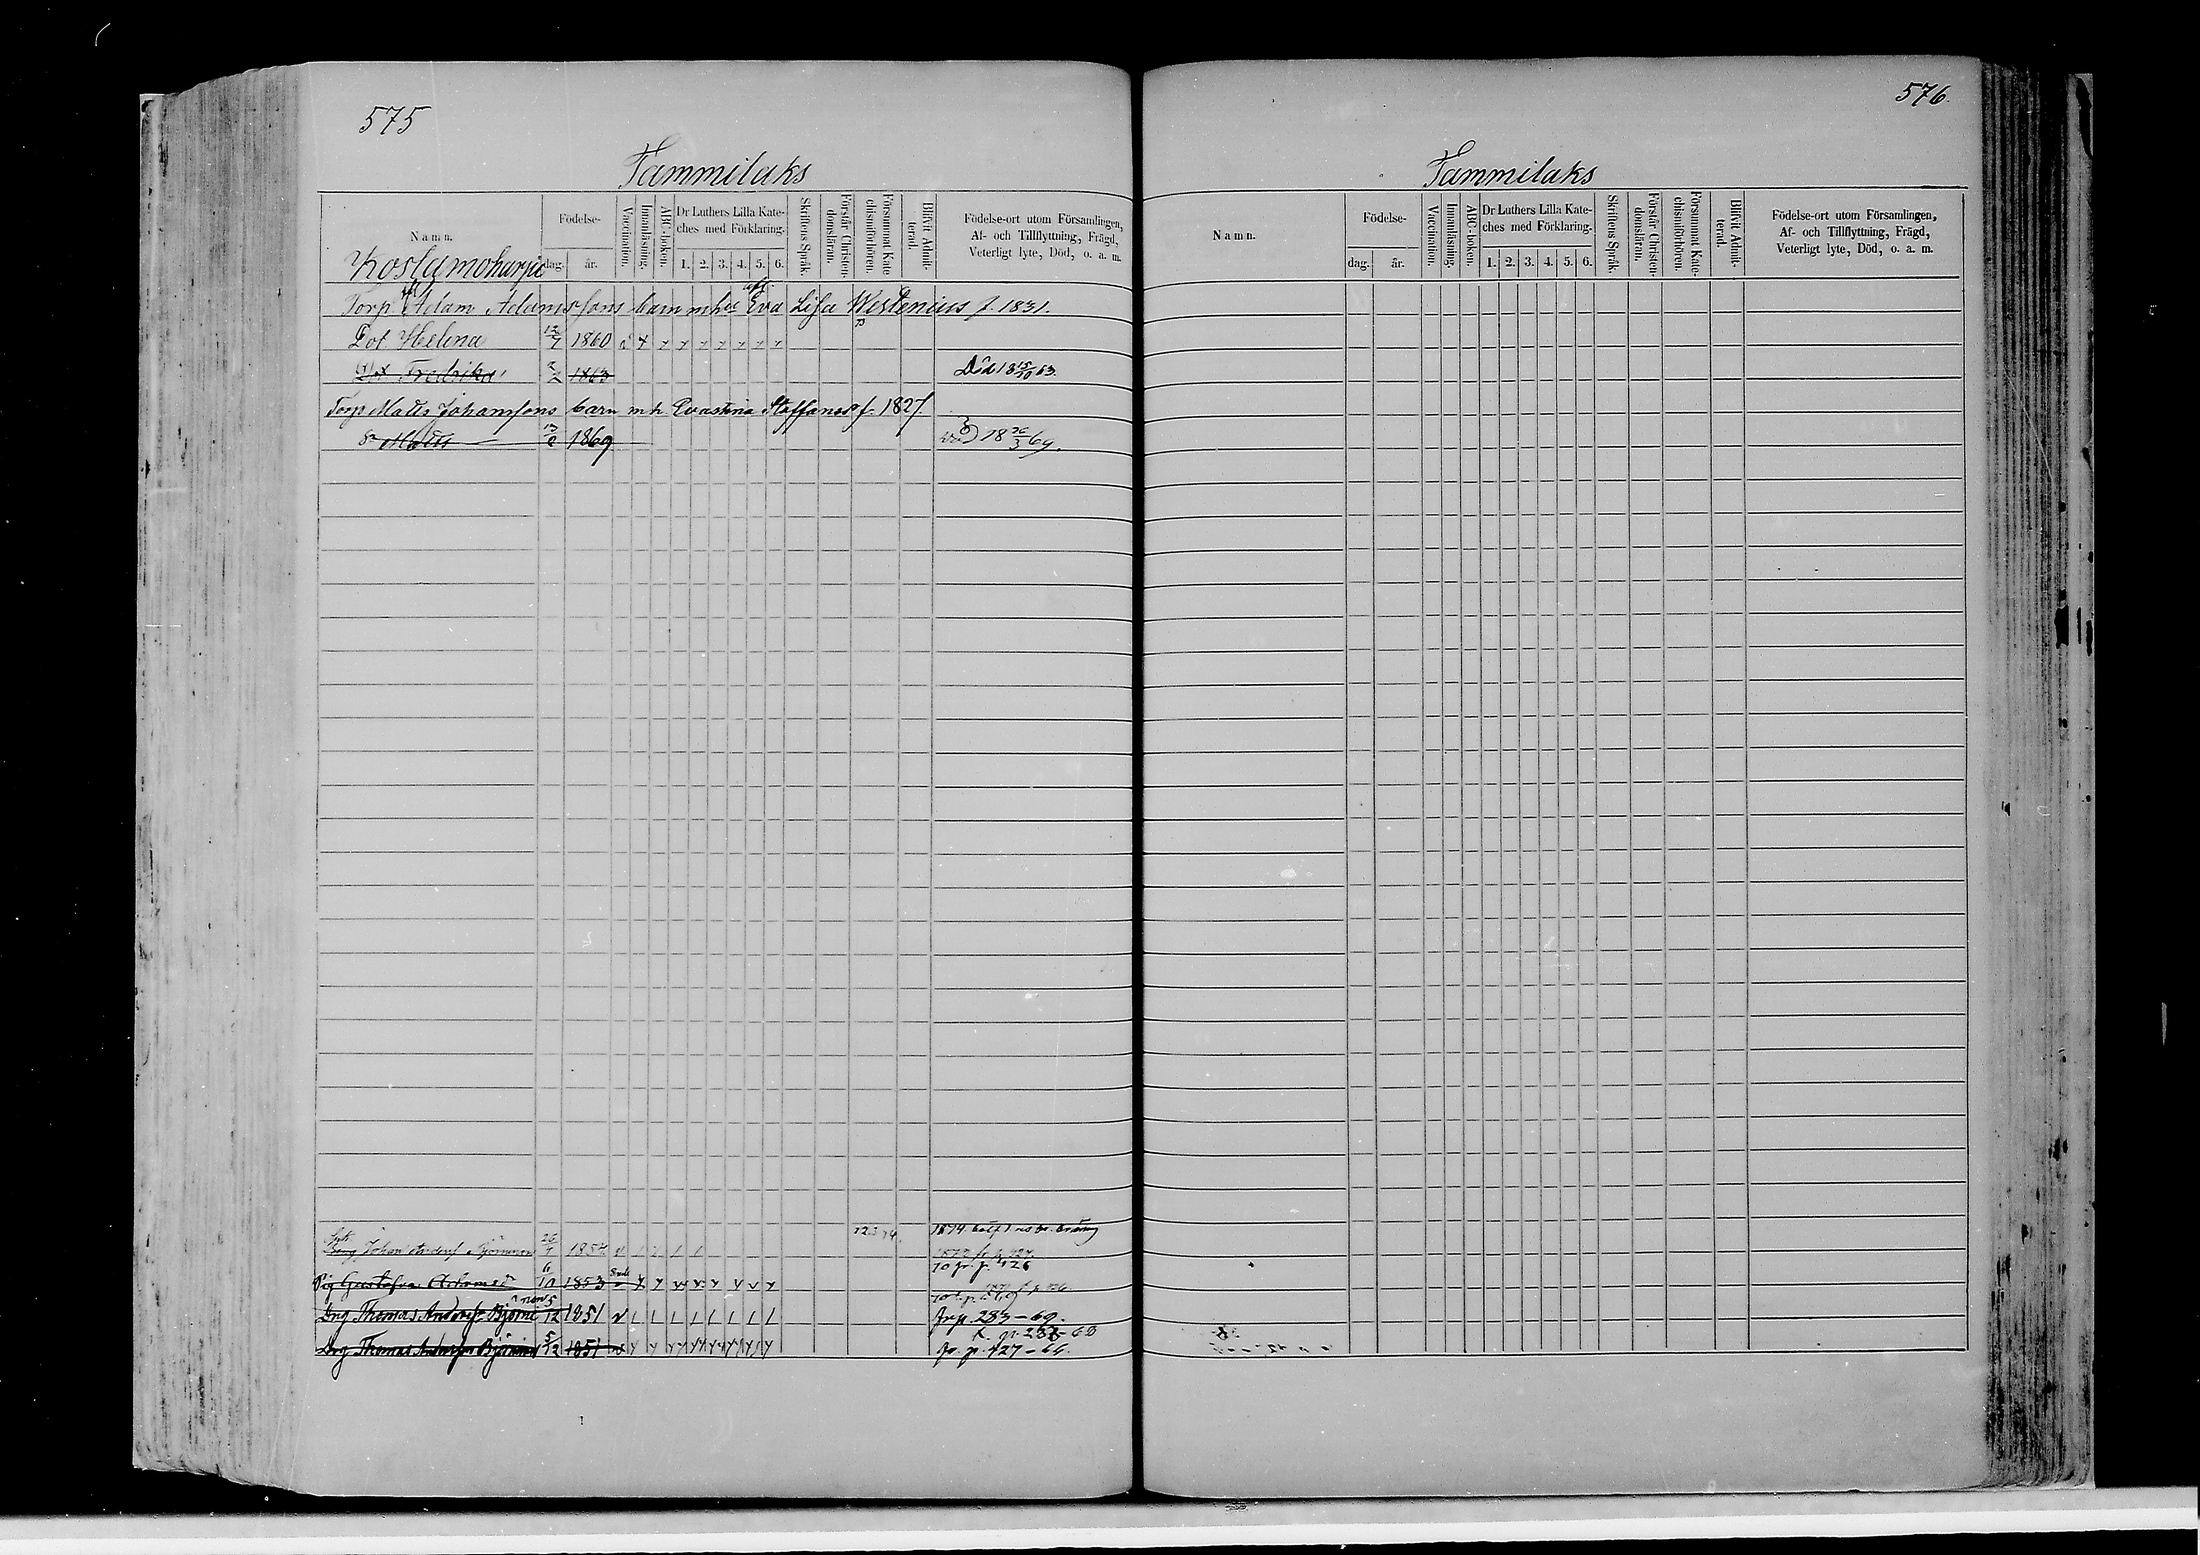 575
Tammilaks
Namn.
Födelse-
dag.
år.
Vaccination.
Innanläsning.
ABC-boken.
Dr Luthers Lilla Kate-
ches med Förklaring.
1. 2. 3. 4. 5. 6.
Skriftens Språk.
Förstår Christen-
domsläran.
Försummat Kate
chismiförhören.
Blifvit Admit-
terad.
Födelse-ort utom Församlingen,
Af- och Tillflyttning, Frägd,
Veterligt lyte, Död, o. a. m.
Torp. Adam Adamssons barn mh Eva Lisa Westenius f. 1831.
Dot Helena 12/7 1860
Dot Fredrika 1863 Död 18 15/10 63.
Torp Matts Johanssons barn m h Evastina Staffansd f. 1827
Sn Matts 1869 18 26/3 69.
12.3 74.
Johan 26/7 1857
Pig Gustafva 6/10 1853
Drg Thomas Anderss Björni 5/12 1851 fr p. 283–69.
Drg Thomas Anderss Björninen 5/12 1851 fr p. 427–66.
576.
Tammilaks
Namn.
Födelse-
dag.
år.
Vaccination.
Innanläsning.
ABC-boken.
Dr Luthers Lilla Kate-
ches med Förklaring.
1. 2. 3. 4. 5. 6.
Skriftens Språk.
Förstår Christen-
domsläran.
Försummat Kate-
chismiförhören.
Blifvit Admit-
terad.
Födelse-ort utom Församlingen,
Af- och Tillflyttning, Frägd,
Veterligt lyte, Död, o. a. m.